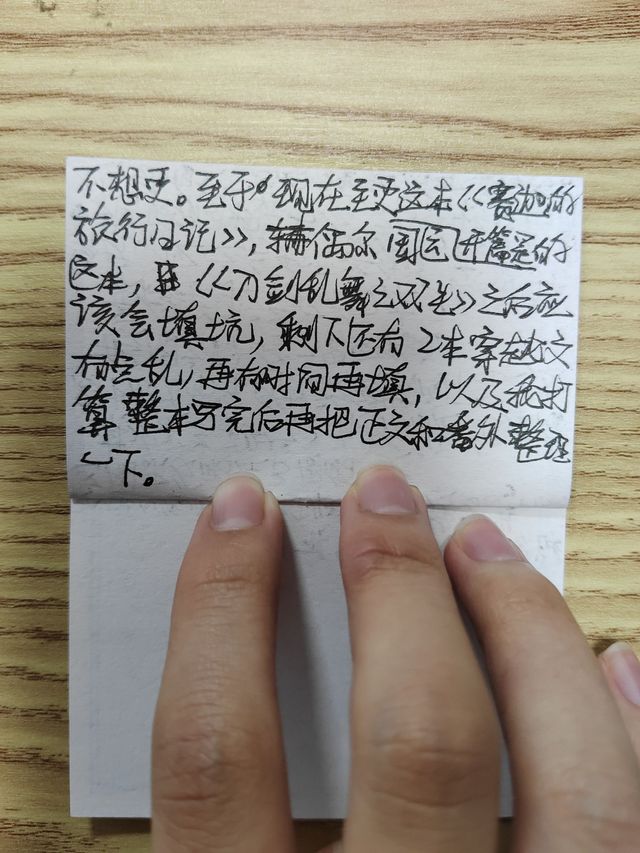 不想更。至于现在主更这本《赛迦的
旅行日记》，偶尔开篇的
这本，《刀剑乱舞之双生》之后应
该会填坑，剩下还有2本穿越文
有点乱，再有时间再填，以及我打
算整本写完后再把正文和番外整理
一下。